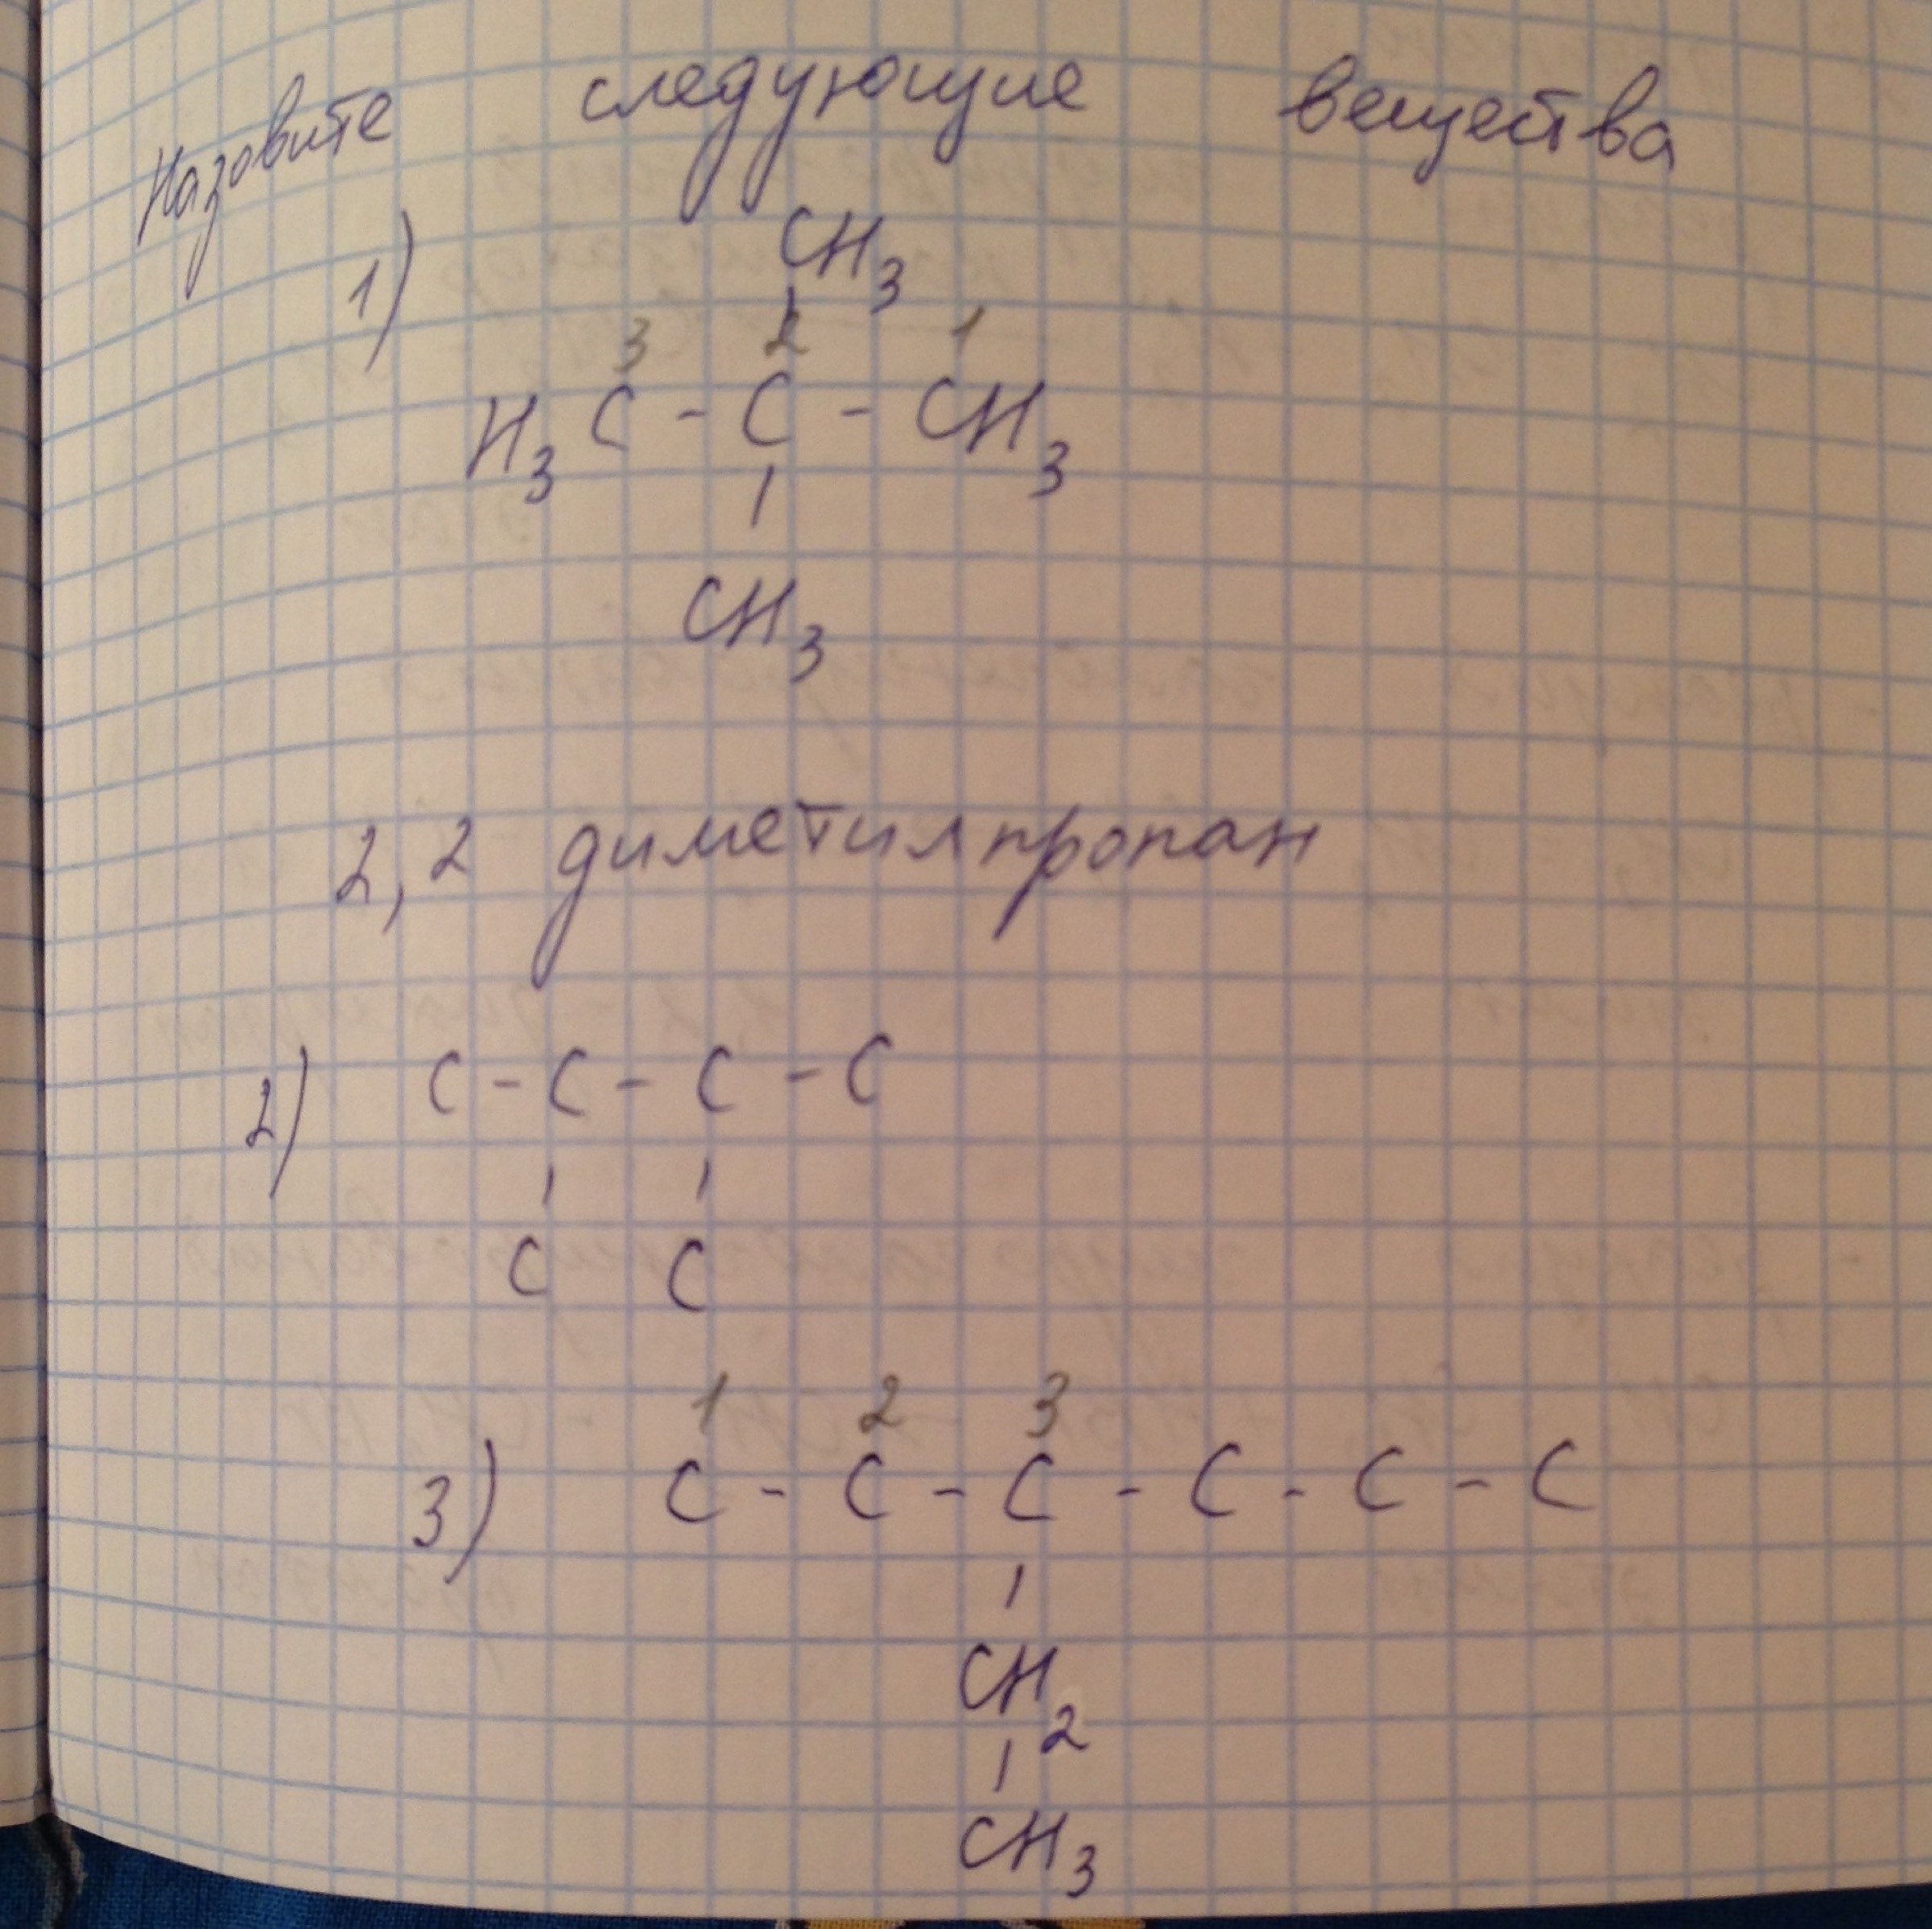 Назовите следующие вещества
1)
CH3
3 2 1
H3C - C - CH3
CH3
2,2 диметилпропан
2) C - C - C - C
C C
1 2 3
3) C - C - C - C - C - C
CH2
CH3